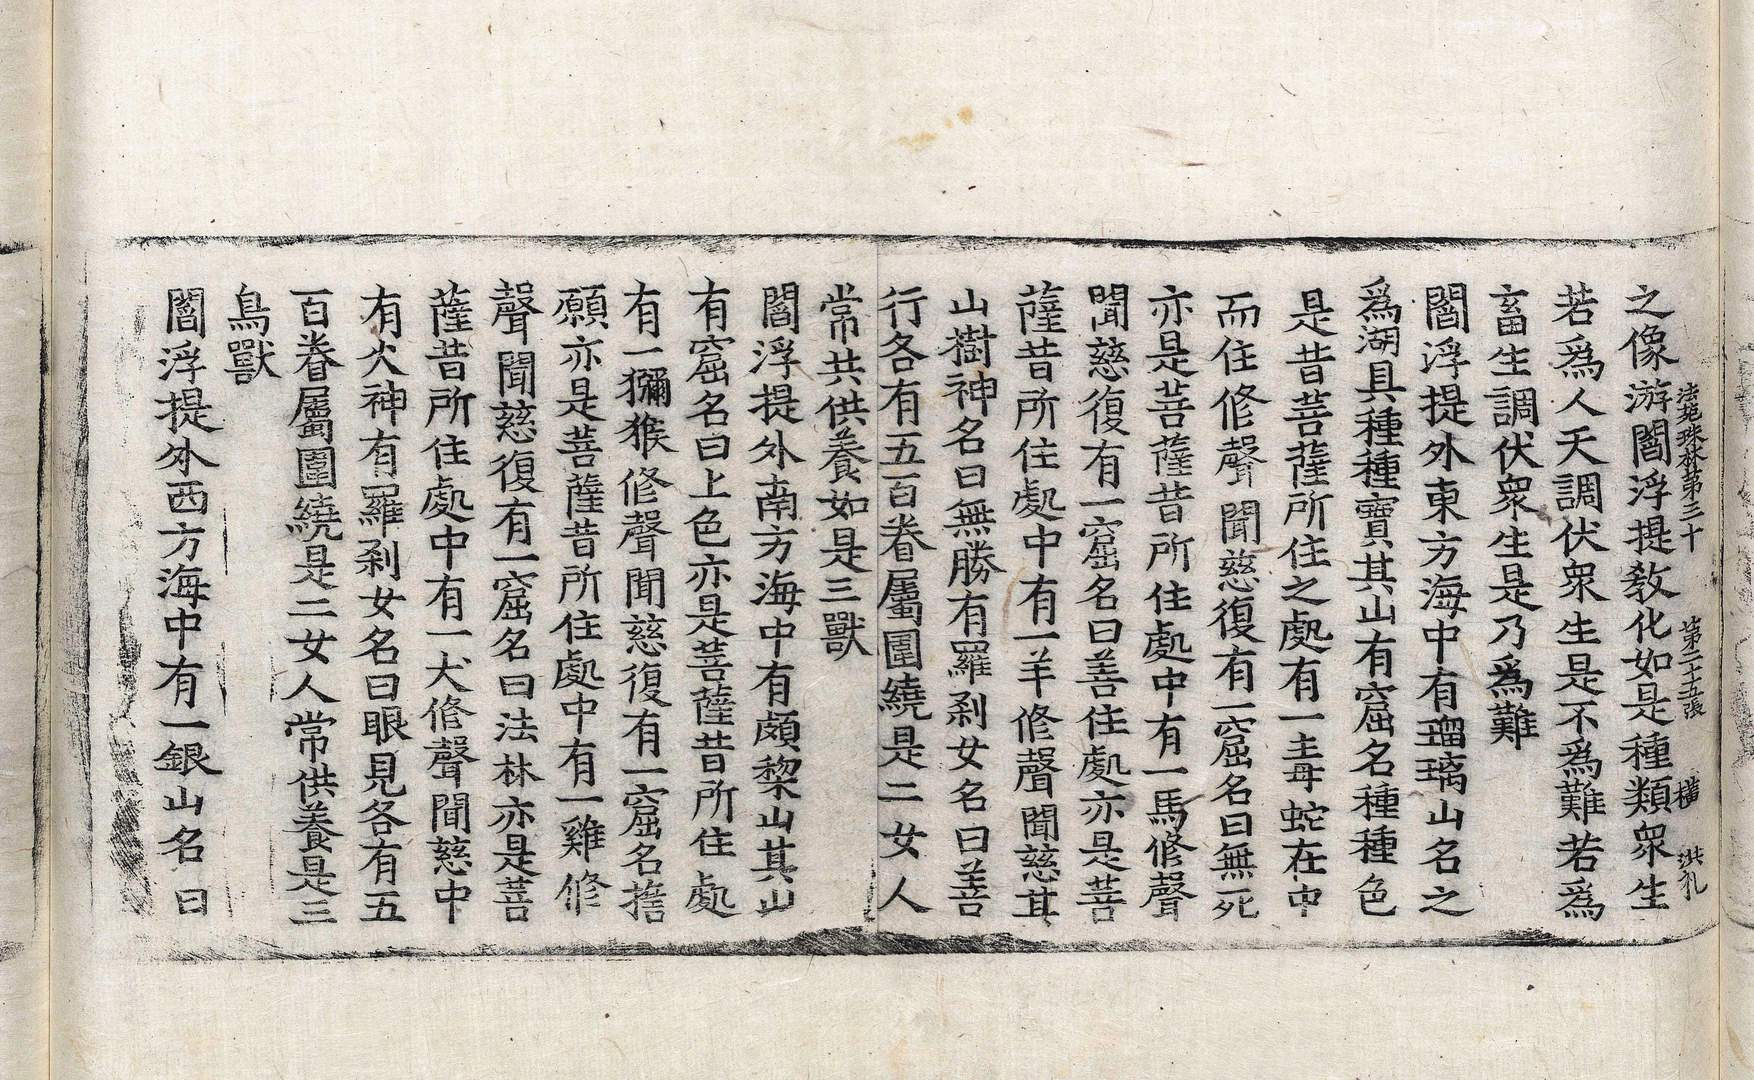 法苑珠林第三十 第二十五張 橫 洪礼
之像游閻浮提教化如是種類衆生
若爲人天調伏衆生是不爲難若爲
畜生調伏衆生是乃爲難
閻浮提外東方海中有瑠璃山名之
爲湖具種種寶其山有窟名種種色
是昔菩薩所住之處有一毒蛇在中
而住修聲聞慈復有一窟名曰無死
亦是菩薩昔所住處中有一馬修聲
聞慈復有一窟名曰善住處亦是菩
薩昔所住處中有一羊修聲聞慈其
山樹神名曰無勝有羅剎女名曰善
行各有五百眷屬圍繞是二女人
常共供養如是三獸
閻浮提外南方海中有頗梨山其山
有窟名曰上色亦是菩薩昔所住處
有一獼猴修聲聞慈復有一窟名擔
願亦是菩薩昔所住處中有一雞修
聲聞慈復有一窟名曰法林亦是菩
薩昔所住處中有一犬修聲聞慈中
有火神有羅剎女名曰眼見各有五
百眷屬圍繞是二女人常供養是三
鳥獸
閻浮提外西方海中有一銀山名曰